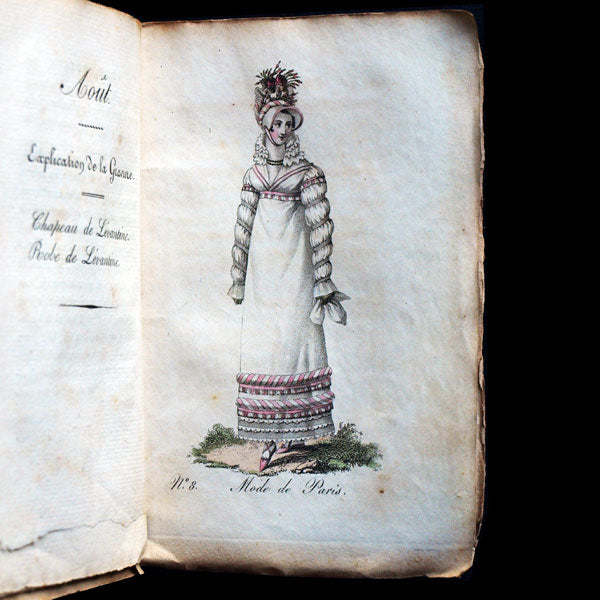 Août.
Explication de la Gravure.
Chapeau de Lévantine.
Robe de Lévantine.
Nº 8. Mode de Paris.